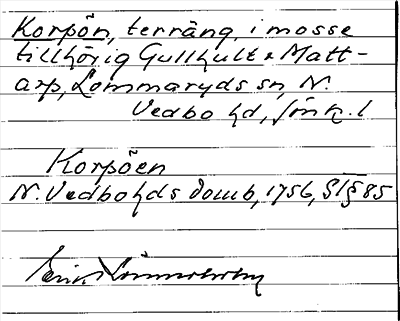 Korpön, terräng, i mosse
tillhörig Gullhult o Matt-
arp, Lommaryds sn, N.
Vedbo hd, Jönk. l
Korpöen
N. Vedbo hds domb, 1756, St § 85
Erik